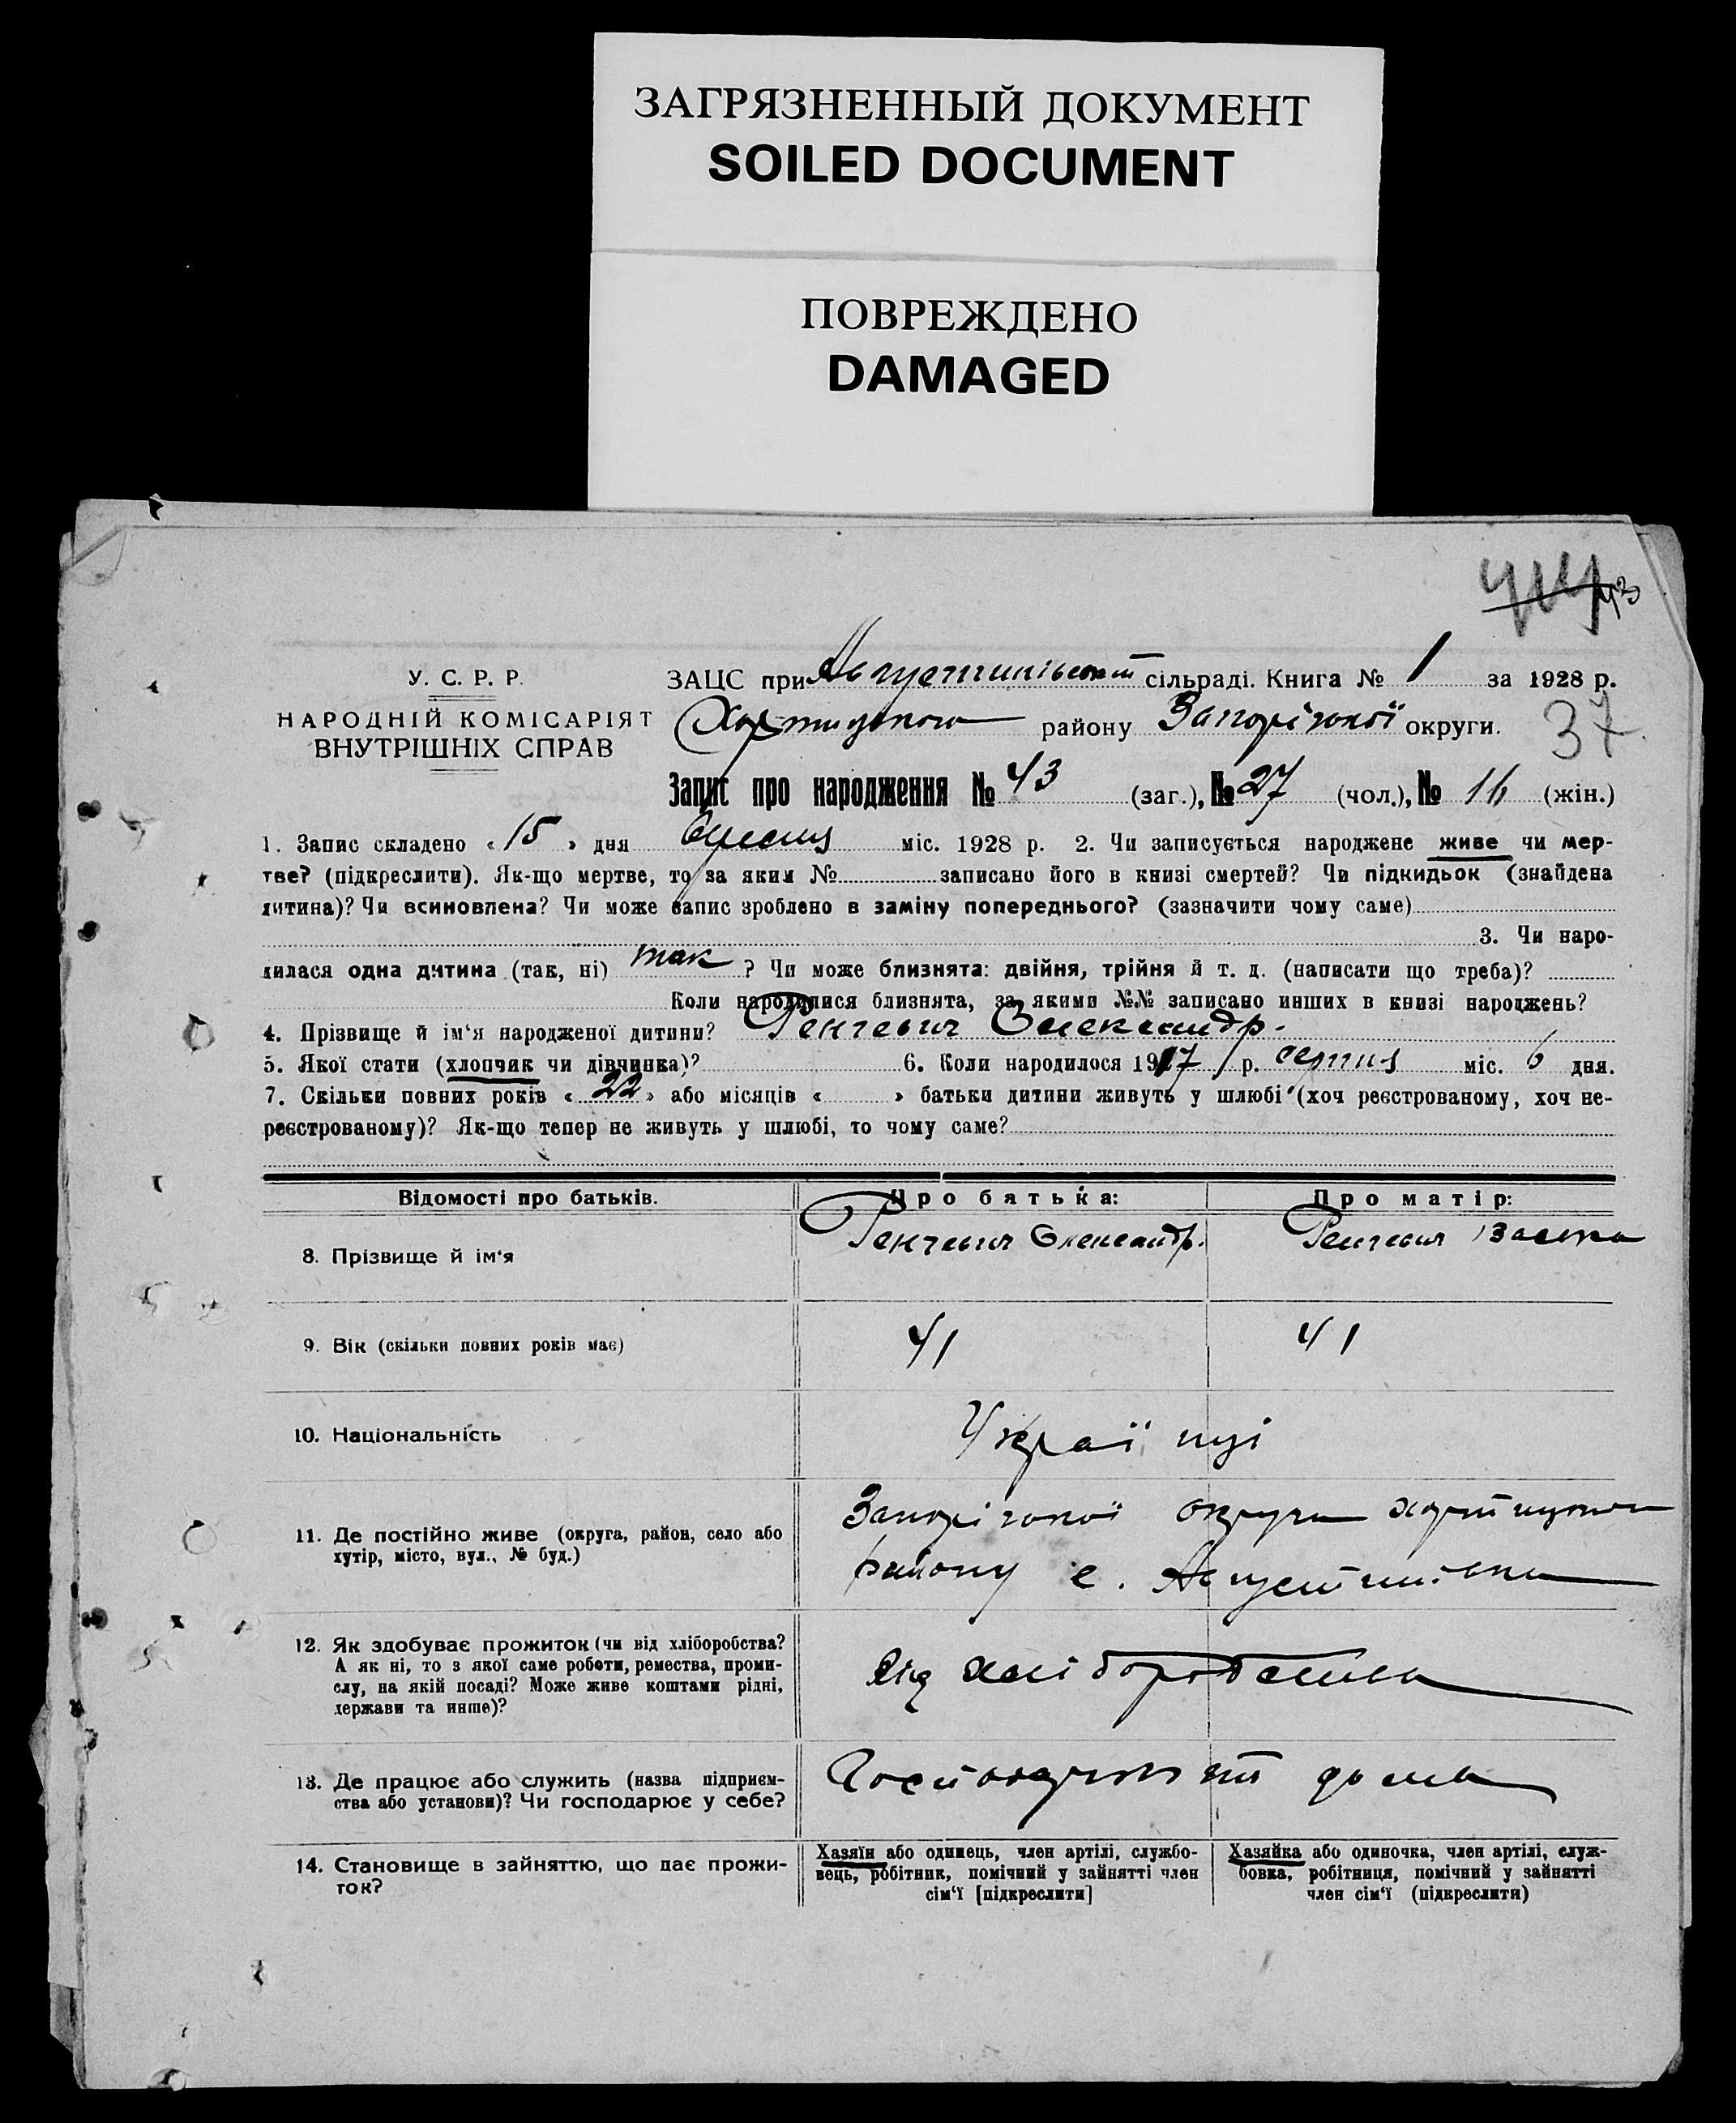 ЗАГРЯЗНЕННЫЙ ДОКУМЕНТ
SOILED DOCUMENT
ПОВРЕЖДЕНО
DAMAGED
43
У. С. Р. Р.
НАРОДНІЙ КОМІСАРІЯТ
ВНУТРІШНІХ СПРАВ
ЗАЦС при Августинівській сільраді. Книга № 1 за 1928 р.
Хортицького району Запорізької округи.
37
Запис про народження № 43 (заг.), № 27 (чол.), № 16 (жін.)
1. Запис складено « 15 » дня міс. 1928 р. 2. Чи записується народжене живе чи мер-
тве? (підкреслити). Як-що мертве, то за яким № записано його в книзі смертей? Чи підкидьок (знайдена
дитина)? Чи всиновлена? Чи може запис зроблено в заміну попереднього? (зазначити чому саме)
3. Чи наро-
дилася одна дитина (так, ні) так ? Чи може близнята: двійня, трійня й т. д. (написати що треба)?
Коли народилися близнята, за якими №№ записано инших в книзі народжень?
4. Прізвище й ім'я народженої дитини? Ренчевич Олександр.
5. Якої стати (хлопчик чи дівчинка)? 6. Коли народилося 1917 р. серпня міс. 6 дня.
7. Скільки повних років « 22 » або місяців « » батьки дитини живуть у шлюбі (хоч реєстрованому, хоч не-
реєстрованому)? Як-що тепер не живуть у шлюбі, то чому саме?
Відомості про батьків. Про батька: Про матір:
8. Прізвище й ім'я Ренчевич Олександр. Ренчевич
9. Вік (скільки повних років має) 41 41
10. Національність Україї нці
11. Де постійно живе (округа, район, село або Запорізької округи Хортицького
хутір, місто, вул., № буд.) району с. Августинівка
12. Як здобуває прожиток (чи від хліборобства? Від хліборобства
А як ні, то з якої саме роботи, ремества, проми-
слу, на якій посаді? Може живе коштами рідні,
держави та инше)?
13. Де працює або служить (назва підприєм-
ства або установи)? Чи господарює у себе? дома
14. Становище в зайняттю, що дає прожи-
ток?
Хазяїн або одинець, член артілі, службо-
вець, робітник, помічний у зайнятті член
сім'ї [підкреслити]
Хазяйка або одиночка, член артілі, служ-
бовка, робітниця, помічний у зайнятті
член сім'ї (підкреслити)